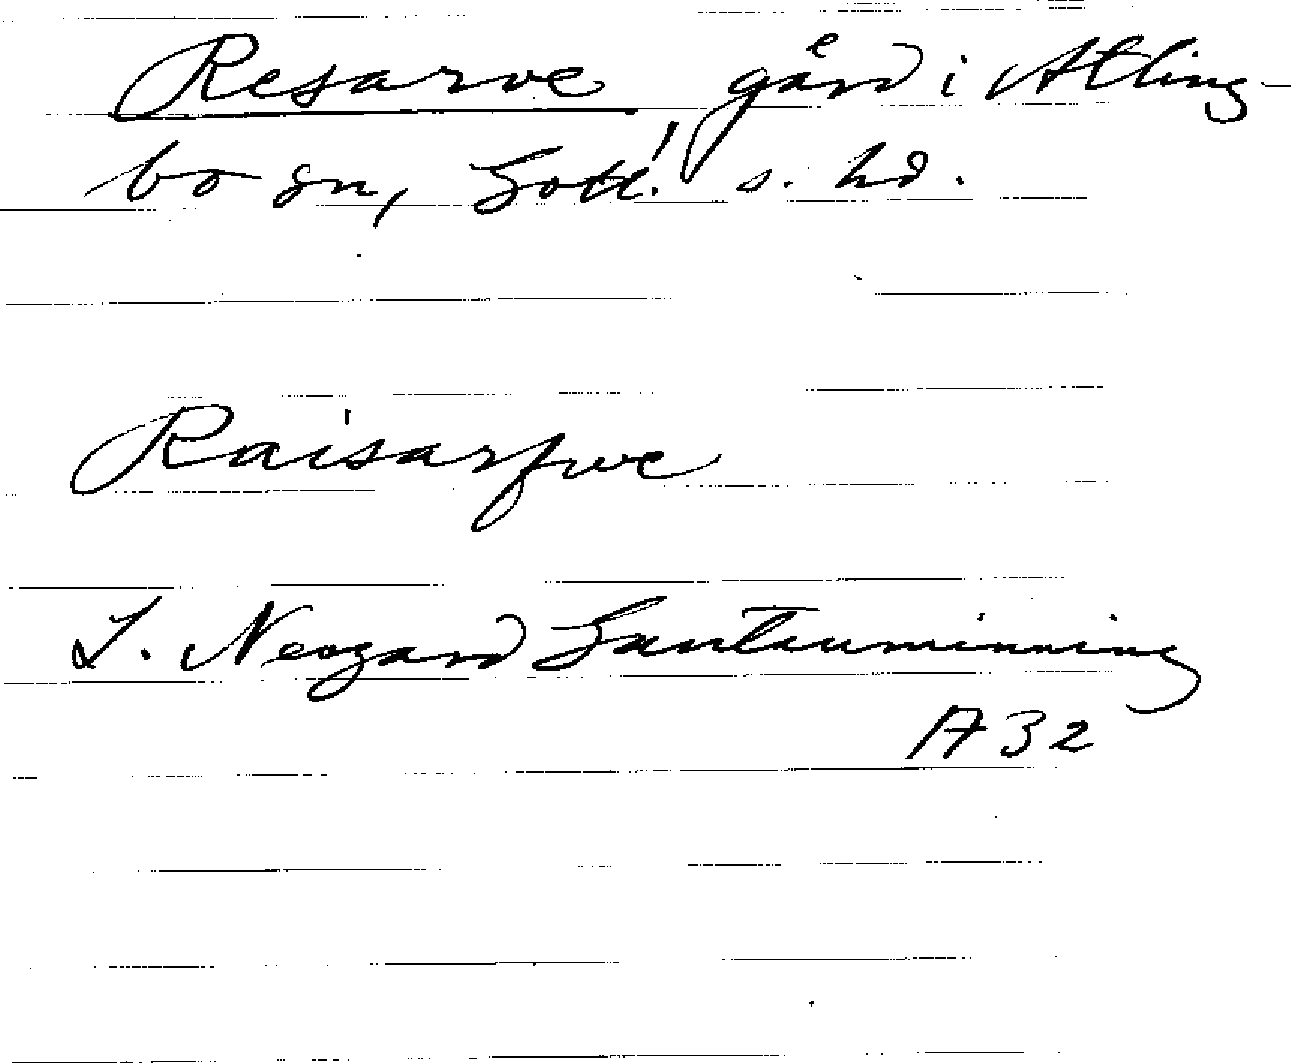 Resarve gård i Atling-
bo sn, Gotl. s. hd.
Raisarfwe
L. Neogard Gautauminning
A 32